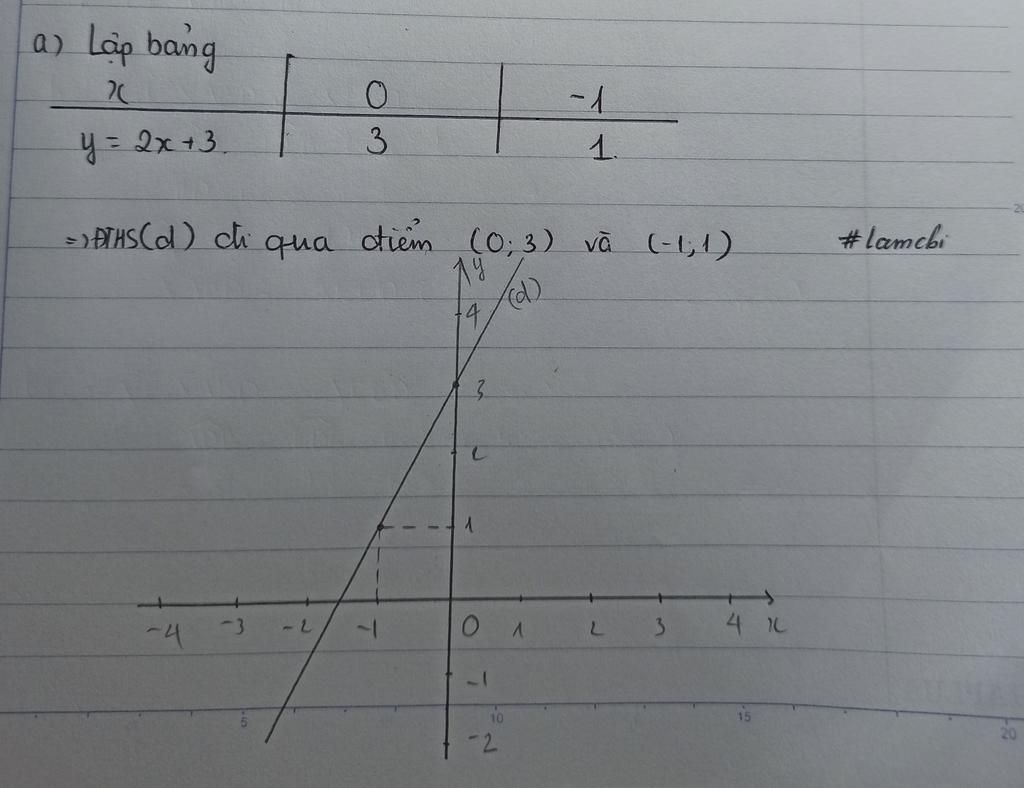 a) Lập bảng
x 0 -1
y = 2x+3. 3 1.
=> ĐTHS(d) đi qua điểm (0;3) và (-1;1) #lamchi
y
(d)
4
3
2
1
-4 -3 -2 -1 0 1 2 3 4 x
-1
5 10 15 20
-2